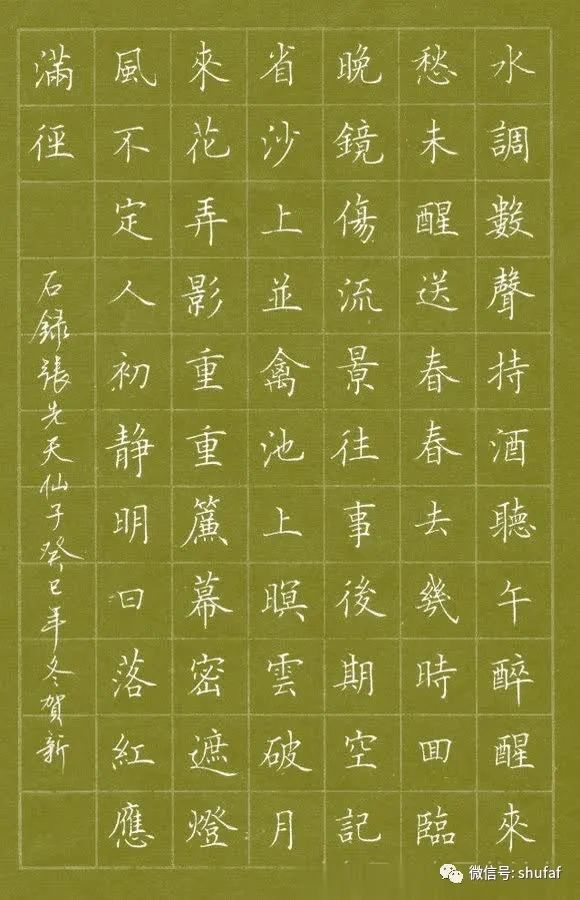 水調數聲持酒聽午醉醒來
愁未醒送春春去幾時囬臨
晚鏡傷流景往事後期空記
省沙上並禽池上暝雲破月
來花弄影重重簾幕密遮燈
風不定人初靜明日落紅應
滿徑
右錄張先天仙子癸巳年冬賀新
微信号: shufaf